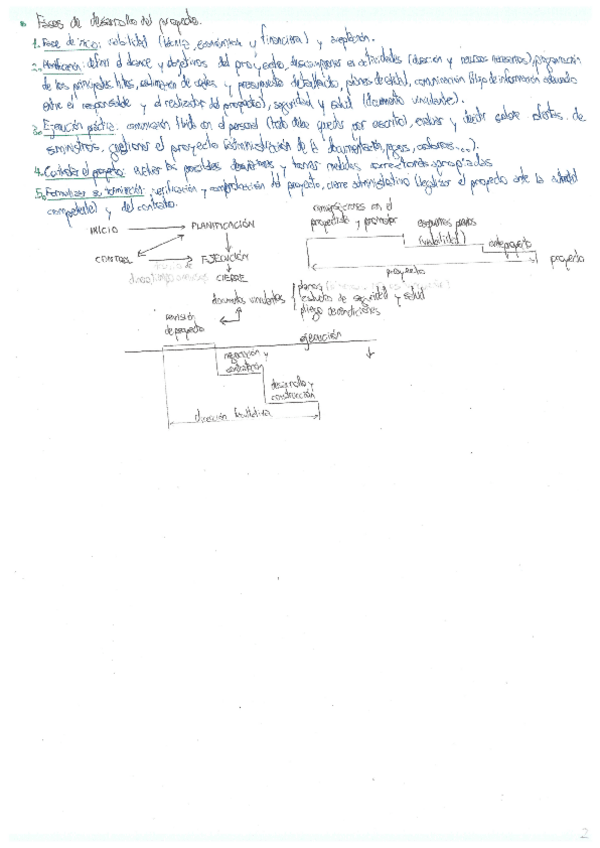 Fases de desarrollo del proyecto.
1. Fase de inicio: viabilidad (técnica, económica y financiera) y aceptación.
2. Planificación: definir el alcance y objetivos del proyecto, descomponer en actividades (duración y recursos necesarios), programación
de los principales hitos, estimación de costes y presupuesto detallado, planes de calidad, comunicación (flujo de información adecuado
entre el responsable y el realizador del proyecto), seguridad y salud (documento vinculante).
3. Ejecución práctica: comunicación fluida con el personal (todo debe quedar por escrito), evaluar y decidir sobre ofertas de
suministros, gestionar el proyecto (administración de la documentación, pagos, cobros...).
4. Controlar el proyecto: evaluar las posibles desviaciones y tomar medidas correctoras apropiadas
5. Formalizar su terminación: verificación y comprobación del proyecto, cierre administrativo (legalizar el proyecto ante la autoridad
competente) y del contrato.
INICIO PLANIFICACIÓN
CONTROL EJECUCIÓN
CIERRE
conversaciones con el
proyectista y promotor
esquemas previos
(viabilidad)
anteproyecto
proyecto
proyecto
documentos vinculantes
planos
estudio de seguridad y salud
pliego de condiciones
revisión
de proyecto
ejecución
negociación y
contratación
desarrollo y
construcción
dirección facultativa
2